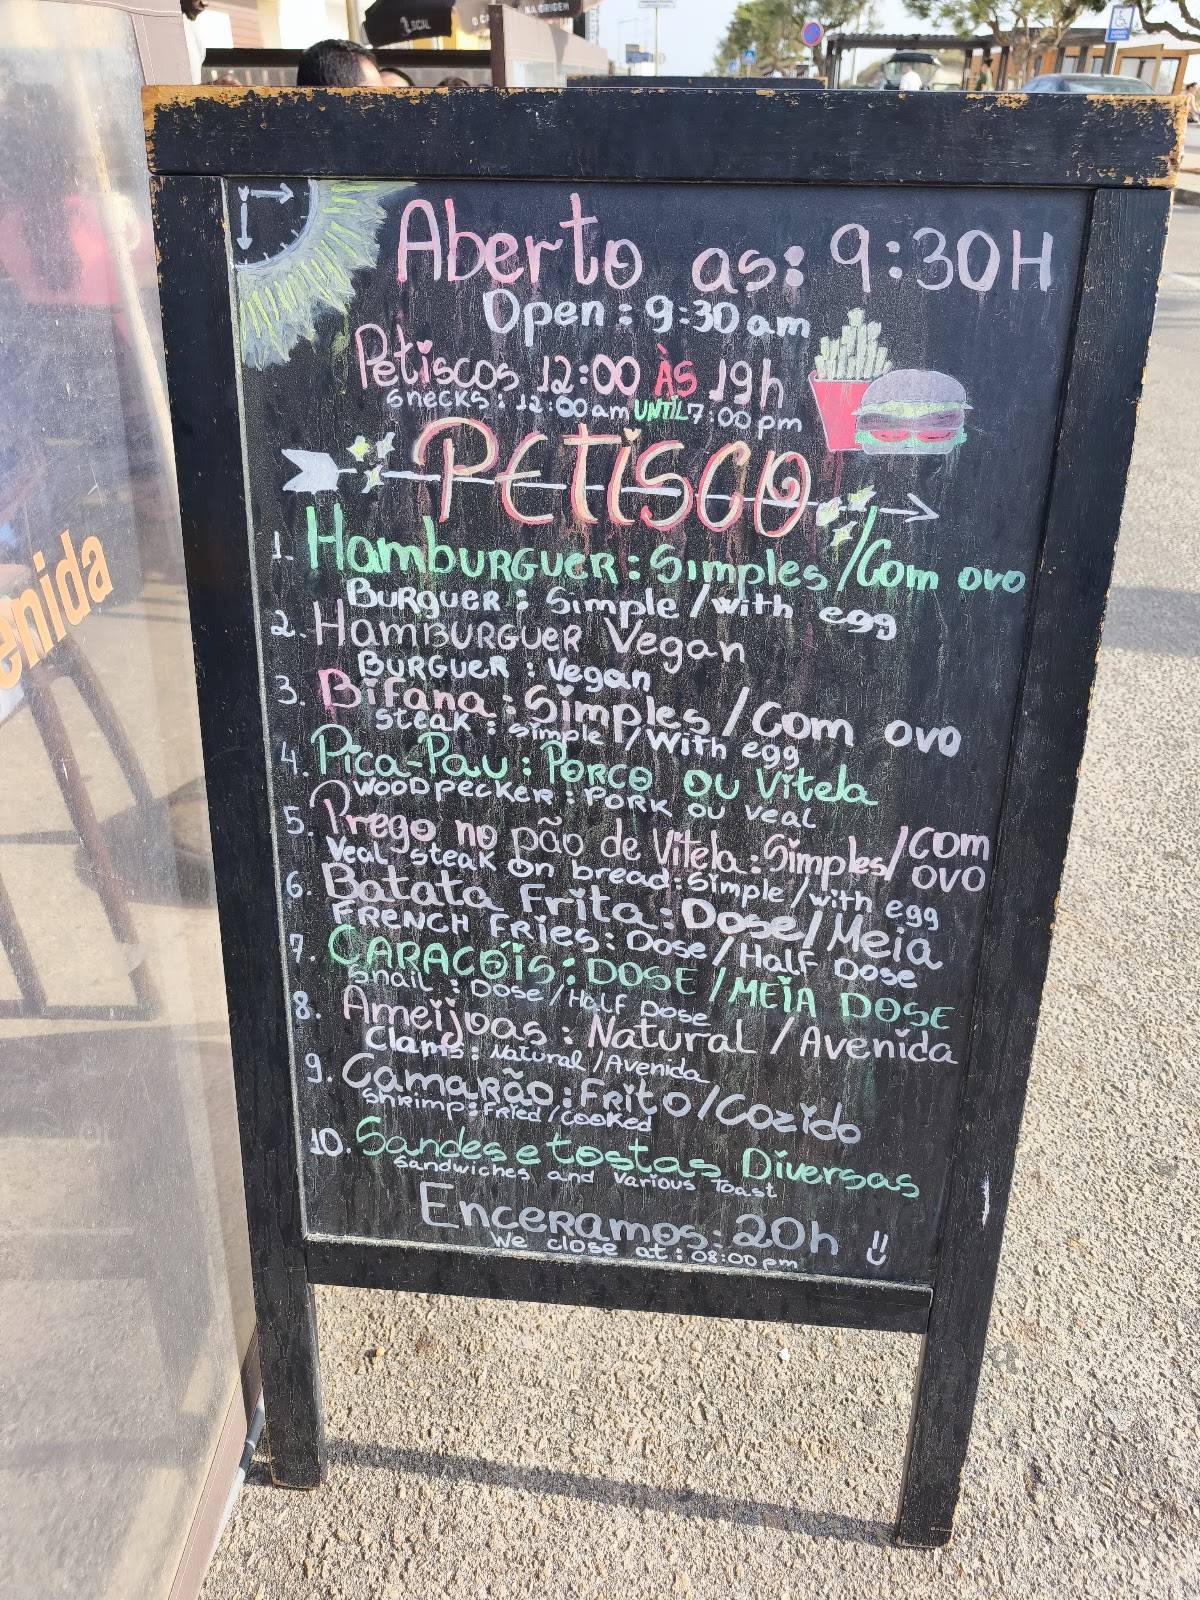 NA ORIGEM
Aberto as: 9:30H
Open: 9:30 am
Petiscos 12:00 ÀS 19h
snecks: 12:00am UNTIL 7:00pm
PETISCO
1. HamBURGUER: Simples/Com ovo
BURGUER: Simple/with egg
2. HamBURGUER Vegan
BURGUER: Vegan
3. Bifana: Simples/Com ovo
steak: simple/With egg
4. Pica-Pau: PORCO OU Vitela
WOODPECKER: PORK OU VEAL
5. Prego no pão de Vitela: Simples/Com ovo
Veal steak on bread: Simple/with egg
6. Batata Frita: Dose/Meia
FRENCH FRIES: Dose/Half Dose
7. CARACÓIS: DOSE/MEIA DOSE
Snail: DOSE/Half DOSE
8. Ameijoas: Natural/Avenida
Clams: Natural/Avenida
9. CamaRão: FRITO/Cozido
ShRimp: FRied/cooked
10. Sandes e tostas Diversas
Sandwiches and Various Toast
EnceRamos: 20h
We close at: 08:00pm
enida